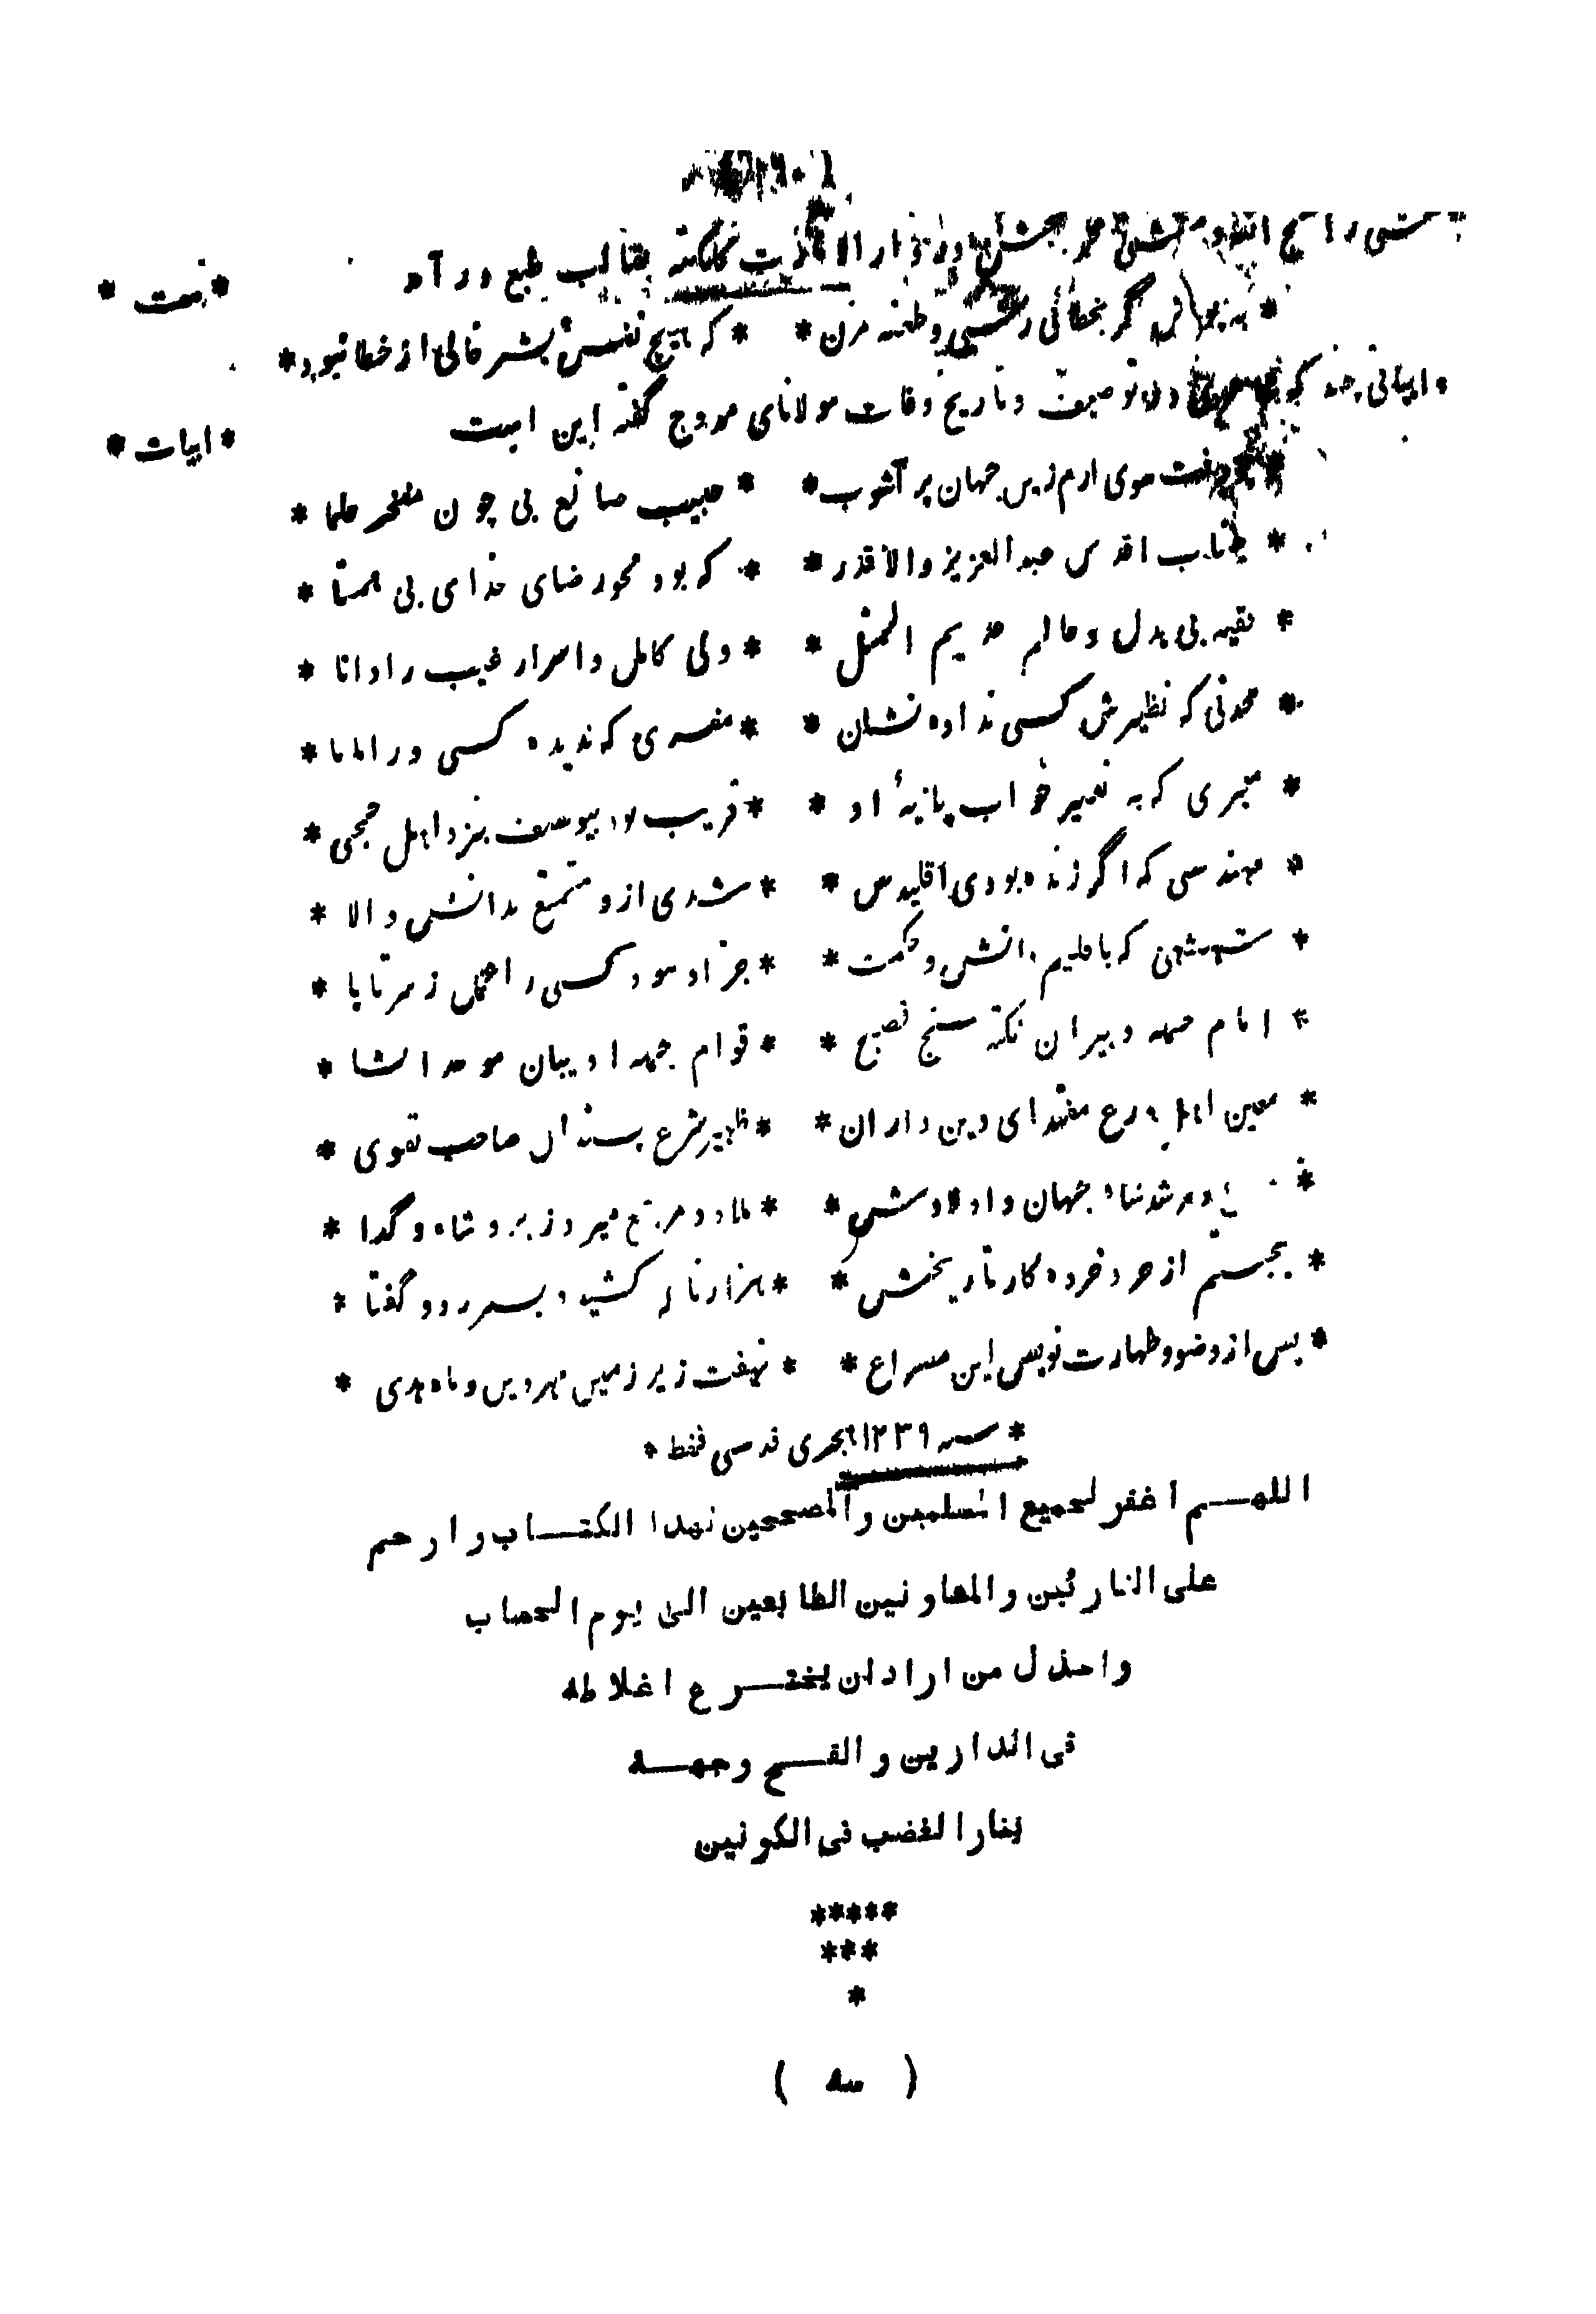 در دار الامارت کلکته بقالب طبع در آمد * بیت *
* بپوش گر بخطائی رسی و طعنه مزن * * که هیچ نفس بشر خالی از خطا نبود *
* ابیاتی چند که در توصیف و تاریخ وفات مولانای ممدوح گفته این است * ابیات *
سوی ارم زین جهان پر آشوب * * حبیب صانع بی چون مفخر علما *
* جناب اقدس عبدالعزیز والا قدر * * که بود محو رضای خدای بی همتا *
* فقیه بی بدل و عالم عدیم المثل * * ولی کامل و اسرار غیب را دانا *
* محدثی که نظیرش کسی نداده نشان * * مفسری که ندیده کسی ورا همتا *
* معبری که به تعبیر خواب پایۀ او * * قریب بود بیوسف بنزد اهل حجی *
* مهندسی که اگر زنده بودی اقلیدس * * شدی ازو متمتع بدانش والا *
* شهنشهی که باقلیم دانش و حکمت * * جز او نبود کسی را عمل ز سر تا پا *
* امام جمله دبیران نکته سنج فصیح * * قوام جمله ادیبان موجد انشا *
* معین اهل ورع مقتدای دین داران * * ظهیر شرع پسند آل صاحب تقوی *
* و مرشد شاه جهان و اولادش * * ملاذ و مرجع میر و زیر و شاه و گدا *
* بجستم از خرد خرده کار تاریخش * * هزار ناله کشید و بسر زد و گفتا *
* پس از وضو و طهارت نویس این مصراع * * نهفت زیر زمین مهر دین و ماه هدی *
* سنه ۱۲۳۹ هجری قدسی فقط *
اللهم اغفر لجمیع المسلمین والمصححین لهذا الکتاب وارحم
علی النارئین والمعاونین الطابعین الی یوم الحساب
واخذل من اراد ان یخترع اغلاطه
فی الدارین والقح وجهه
بنار الغضب فی الکونین
*****
***
*